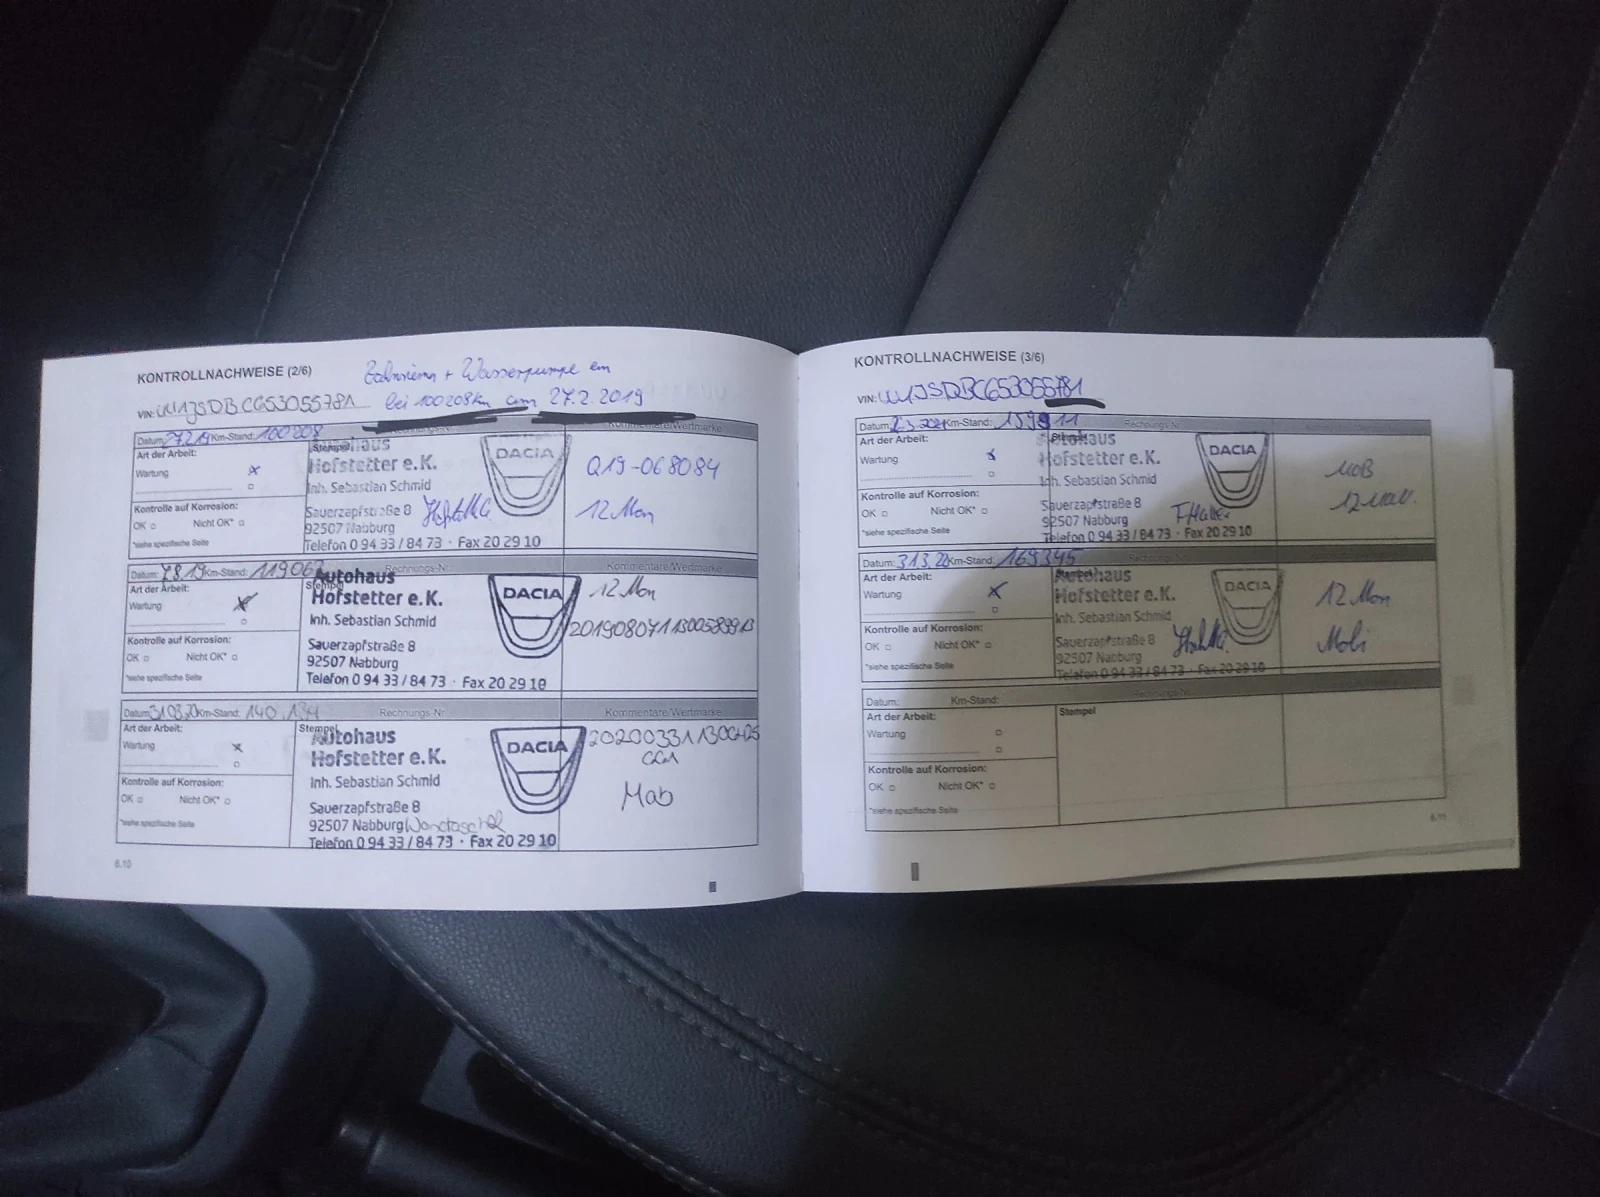 KONTROLLNACHWEISE (2/6)
Zahnriemen + Wasserpumpe em
VIN: UU1JSDBCG53055781 bei 100208km am 27.2.2019
Datum: 27.2.19 Km-Stand: 100208 Rechnungs-Nr. Kommentare/Wertmarke
Art der Arbeit:
Wartung x
Kontrolle auf Korrosion:
OK □ Nicht OK* □
*siehe spezifische Seite
Stempel
Autohaus
Hofstetter e.K.
Inh. Sebastian Schmid
Sauerzapfstraße 8
92507 Nabburg
Telefon 0 94 33 / 84 73 · Fax 20 29 10
DACIA
Q19-068084
12 Mon
Datum: 7.8.19 Km-Stand: 119067 Rechnungs-Nr. Kommentare/Wertmarke
Art der Arbeit:
Wartung x
Kontrolle auf Korrosion:
OK □ Nicht OK* □
*siehe spezifische Seite
Stempel
Autohaus
Hofstetter e.K.
Inh. Sebastian Schmid
Sauerzapfstraße 8
92507 Nabburg
Telefon 0 94 33 / 84 73 · Fax 20 29 10
DACIA
12 Mon
Datum: 31.03.20 Km-Stand: 140.134 Rechnungs-Nr. Kommentare/Wertmarke
Art der Arbeit:
Wartung x
Kontrolle auf Korrosion:
OK □ Nicht OK* □
*siehe spezifische Seite
Stempel
Autohaus
Hofstetter e.K.
Inh. Sebastian Schmid
Sauerzapfstraße 8
92507 Nabburg
Telefon 0 94 33 / 84 73 · Fax 20 29 10
DACIA
Mob
6.10
KONTROLLNACHWEISE (3/6)
VIN: UU1JSDBCG53055781
Datum: Km-Stand: Rechnungs-Nr.
Art der Arbeit:
Wartung x
Kontrolle auf Korrosion:
OK □ Nicht OK* □
*siehe spezifische Seite
Stempel
Autohaus
Hofstetter e.K.
Inh. Sebastian Schmid
Sauerzapfstraße 8
92507 Nabburg
Telefon 0 94 33 / 84 73 · Fax 20 29 10
DACIA
MOB
12 Mon.
Datum: 31.3. Km-Stand: 169345 Rechnungs-Nr.
Art der Arbeit:
Wartung x
Kontrolle auf Korrosion:
OK □ Nicht OK* □
*siehe spezifische Seite
Autohaus
Hofstetter e.K.
Inh. Sebastian Schmid
Sauerzapfstraße 8
92507 Nabburg
Telefon 0 94 33 / 84 73 · Fax 20 29 10
DACIA
12 Mon
Mobi
Datum: Km-Stand: Rechnungs-Nr.
Art der Arbeit:
Wartung □
Kontrolle auf Korrosion:
OK □ Nicht OK* □
*siehe spezifische Seite
Stempel
6.11